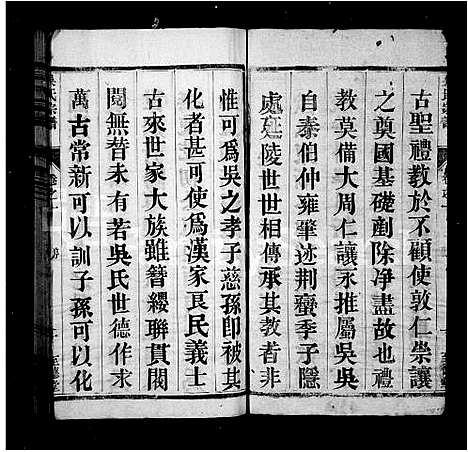 古聖禮教於不顧使敦仁崇讓
之奠國基礎剷除净盡故也繭
教莫備大周仁讓永推屬吳吳
自泰伯仲雍肇迹荆蠻季子隱
處延陵世世相傳承其教者非
惟可爲吳之孝子慈孫即被其
化者甚可使爲漢家良民義士
古來世家大族雖簪纓聯貫閥
閱無替未有若吳氏世德作求
萬古常新可以訓子孫可以化
吳氏宗譜